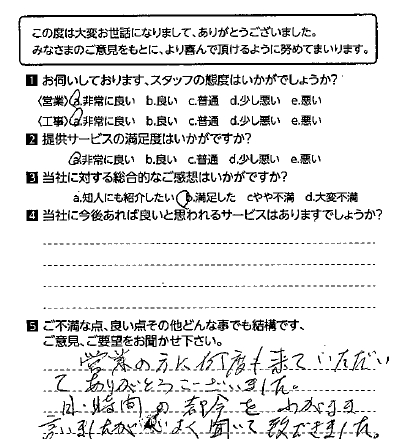 この度は大変お世話になりまして、ありがとうございました。
みなさまのご意見をもとに、より喜んで頂けるように努めてまいります。
1 お伺いしております、スタッフの態度はいかがでしょうか?
〈営業〉 a.非常に良い b.良い c.普通 d.少し悪い e.悪い
〈工事〉 a.非常に良い b.良い c.普通 d.少し悪い e.悪い
2 提供サービスの満足度はいかがですか?
a.非常に良い b.良い c.普通 d.少し悪い e.悪い
3 当社に対する総合的なご感想はいかがですか?
a.知人にも紹介したい b.満足した cやや不満 d.大変不満
4 当社に今後あれば良いと思われるサービスはありますでしょうか?
5 ご不満な点、良い点その他どんな事でも結構です、
ご意見、ご要望をお聞かせ下さい。
営業の方に何度も来ていただい
てありがとうございました。
日・時間の都合をわがまま
言いましたが 聞いて頂きました。